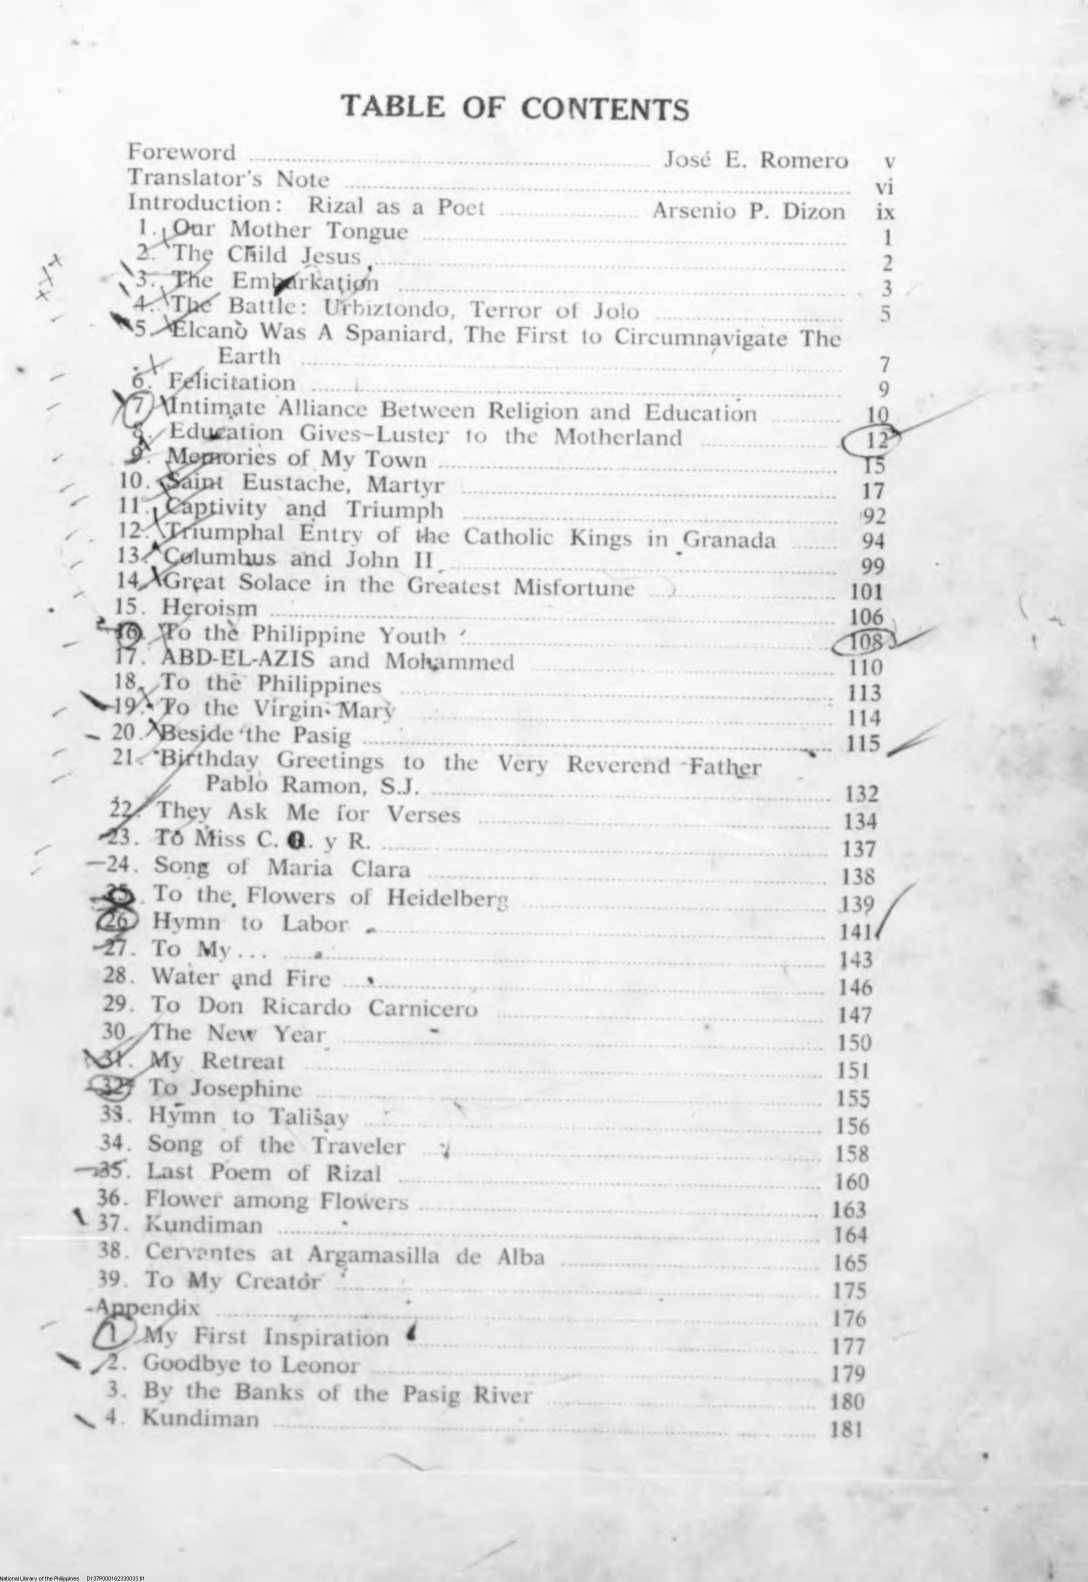 TABLE OF CONTENTS
Foreword ........ José E. Romero v
Translator's Note ........ vi
Introduction: Rizal as a Poet ........ Arsenio P. Dizon ix
1. Our Mother Tongue ........ 1
2. The Child Jesus ........ 2
3. The Embarkation ........ 3
4. The Battle: Urbiztondo, Terror of Jolo ........ 5
5. Elcano Was A Spaniard, The First to Circumnavigate The
Earth ........ 7
6. Felicitation ........ 9
7. Intimate Alliance Between Religion and Education ........ 10
8. Education Gives Luster to the Motherland ........ 12
9. Memories of My Town ........ 15
10. Saint Eustache, Martyr ........ 17
11. Captivity and Triumph ........ 92
12. Triumphal Entry of the Catholic Kings in Granada ........ 94
13. Columbus and John II ........ 99
14. Great Solace in the Greatest Misfortune ........ 101
15. Heroism ........ 106
16. To the Philippine Youth ........ 108
17. ABD-EL-AZIS and Mohammed ........ 110
18. To the Philippines ........ 113
19. To the Virgin Mary ........ 114
20. Beside the Pasig ........ 115
21. Birthday Greetings to the Very Reverend Father
Pablo Ramon, S.J. ........ 132
22. They Ask Me for Verses ........ 134
23. To Miss C. O. y R. ........ 137
24. Song of Maria Clara ........ 138
25. To the Flowers of Heidelberg ........ 139
26. Hymn to Labor ........ 141
27. To My... ........ 143
28. Water and Fire ........ 146
29. To Don Ricardo Carnicero ........ 147
30. The New Year ........ 150
31. My Retreat ........ 151
32. To Josephine ........ 155
33. Hymn to Talisay ........ 156
34. Song of the Traveler ........ 158
35. Last Poem of Rizal ........ 160
36. Flower among Flowers ........ 163
37. Kundiman ........ 164
38. Cervantes at Argamasilla de Alba ........ 165
39. To My Creator ........ 175
Appendix ........ 176
1. My First Inspiration ........ 177
2. Goodbye to Leonor ........ 179
3. By the Banks of the Pasig River ........ 180
4. Kundiman ........ 181
National Library of the Philippines